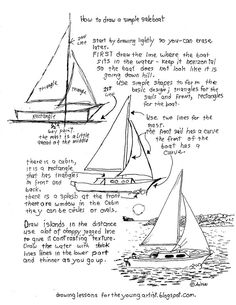 How to draw a simple sailboat
2nd line
1st line
triangle
triangle
Rectangle
key point
the mast is a little ahead of the middle
Start by drawing lightly so you can erase
later.
FIRST draw the line where the boat
sits in the water - keep it horizontal
so the boat does not look like it is
going down hill.
Use simple shapes to form the
basic design; triangles for the
sails and front, rectangles
for the boat.
Use two lines for the
mast.
the front sail has a curve
the front of the
boat has a
curve.
there is a cabin,
it is a rectangle
that has triangles
in front and
back.
there is a splash at the front
there are windows in the cabin
they can be circles or ovals.
Draw islands in the distance
use alot of choppy jagged line
to give it contrasting texture.
Draw the water with thick
lines lines in the lower part
and thinner as you go up.
drawing lessons for the young artist.blogspot.com